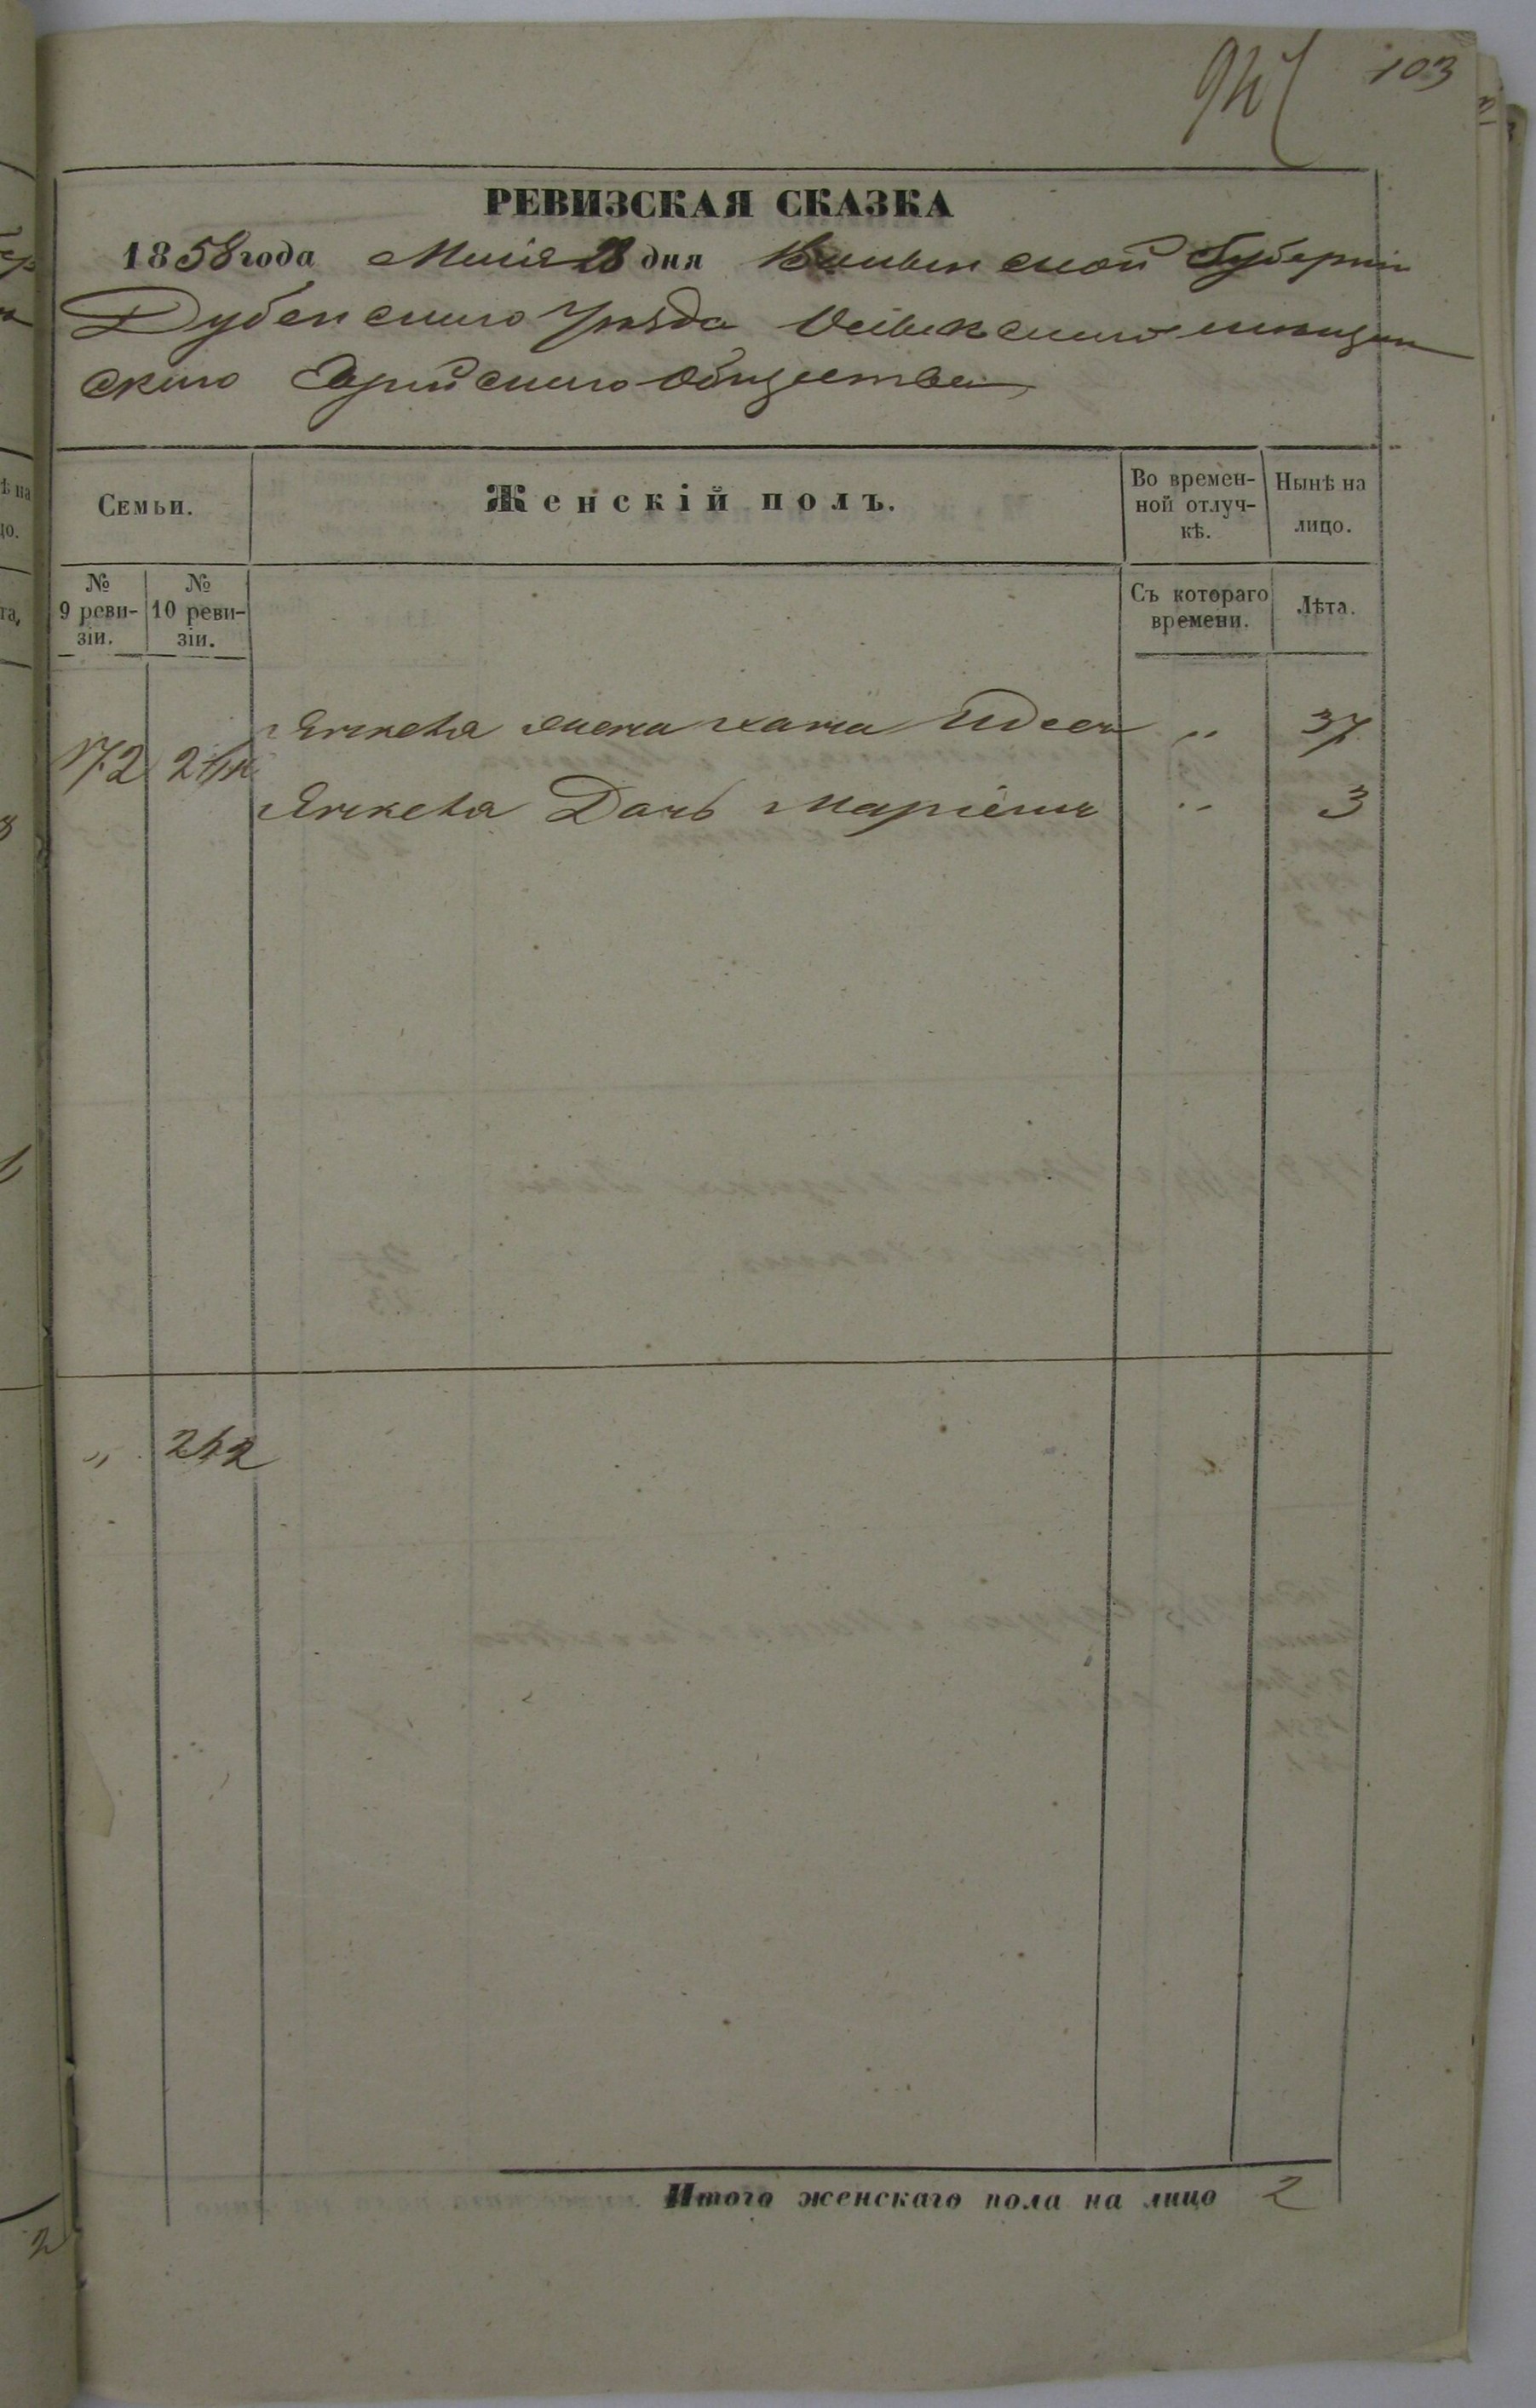 103
РЕВИЗСКАЯ СКАЗКА
1858 года Маія 28 дня Волынской Губерніи
Дубенскаго Уѣзда мѣщан
скаго Еврейскаго Общества
Семьи.
Женскій полъ.
Во времен-
ной отлуч-
кѣ.
Нынѣ на
лицо.
№
9 реви-
зіи.
№
10 реви-
зіи.
Съ котораго
времени.
Лѣта.
Янкеля жена Хана 37
172
Янкеля Дочь Маріемъ 3
„ 242
Итого женскаго пола на лицо 2